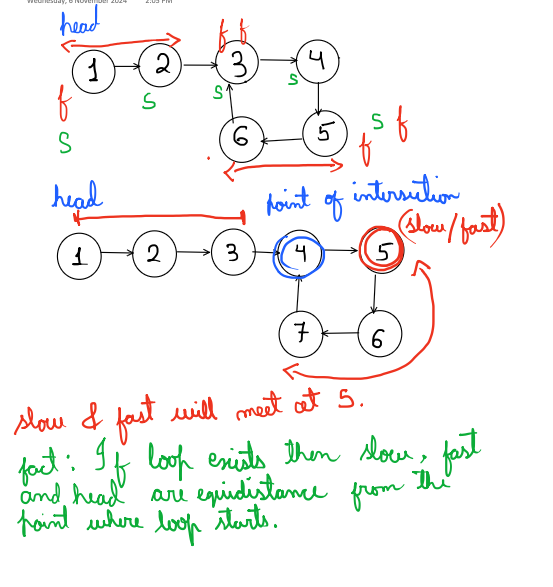 Wednesday, 6 November 2024 2:05 PM
head
f f
1 2 3 4
f s s s
S 6 5 f s f
head point of intersection
(slow/fast)
1 2 3 4 5
7 6
slow & fast will meet at 5.
fact: If loop exists then slow, fast
and head are equidistance from the
point where loop starts.